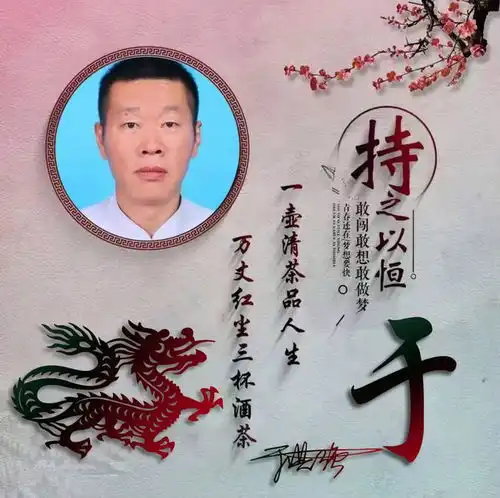 持之以恒
敢闯敢想敢做梦
青春还在 梦想要快
于
一壶清茶品人生
万丈红尘三杯酒茶